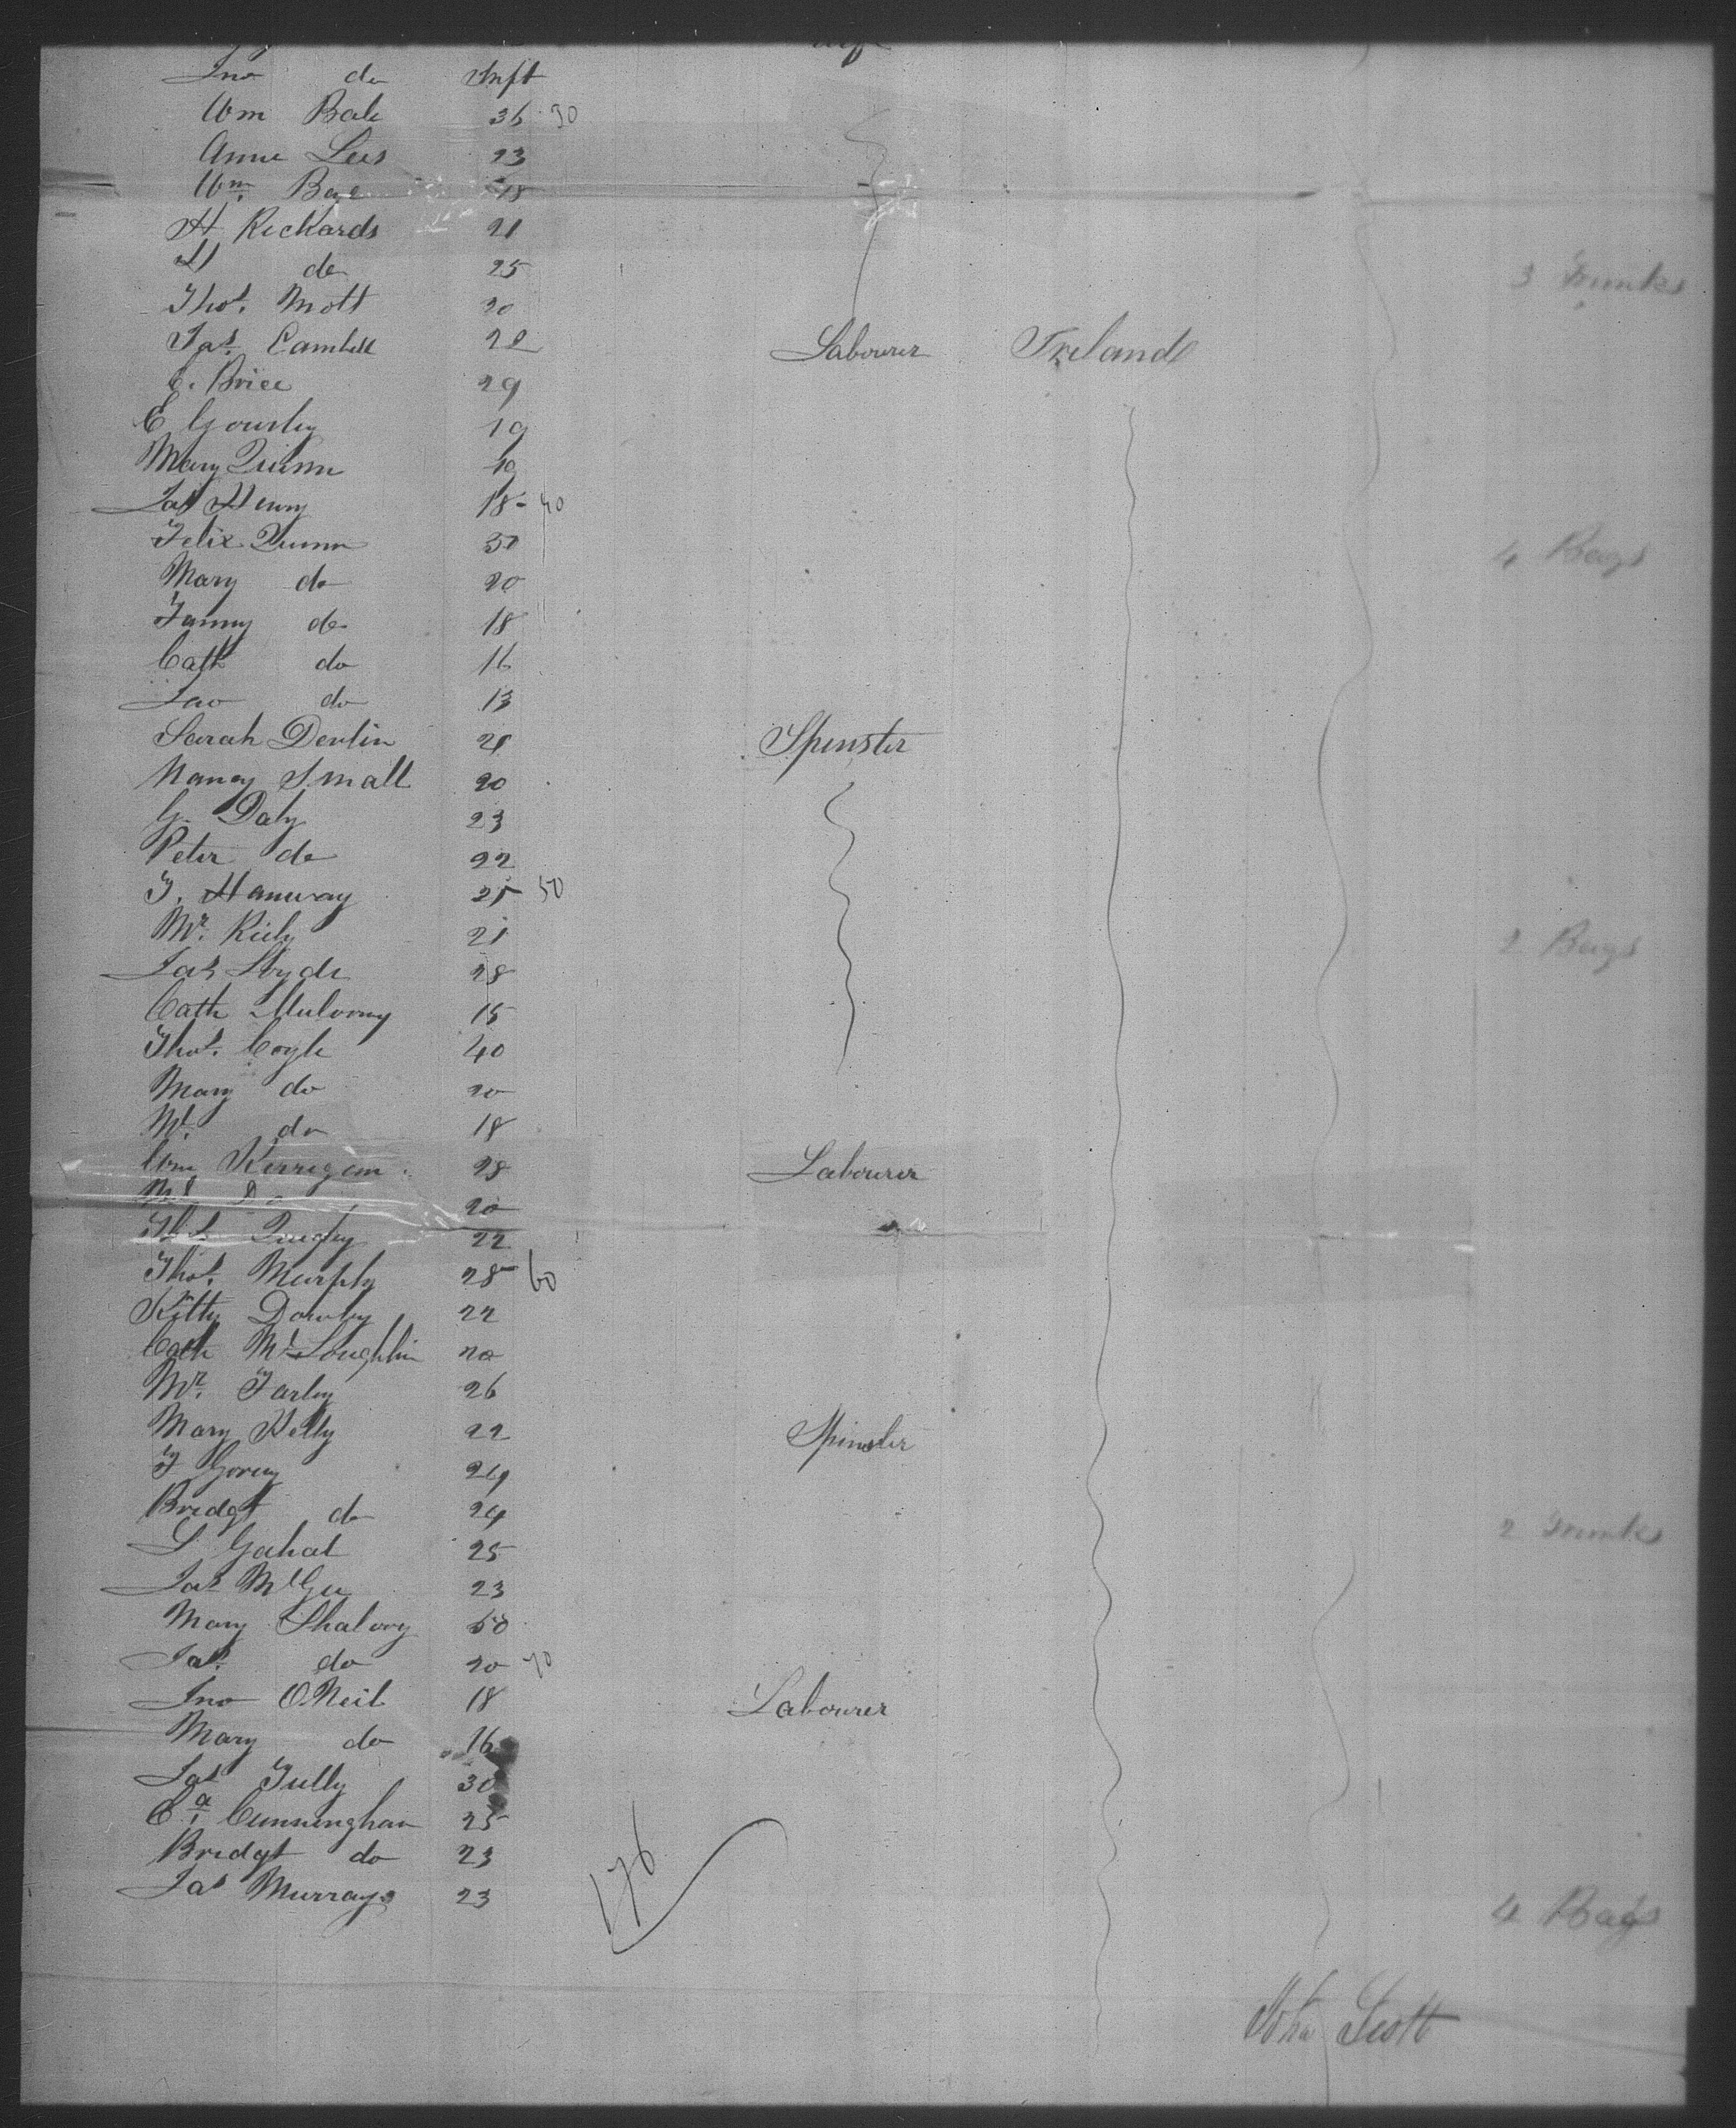 Jno do Inft
Wm Bale 36 30
Anne Lees 23
Wm. Bage 18
H Rickards 21
H do 25 3 Trunks
Thos. Mott 20
Jas. Cambell 22 Labourer Ireland
C. Brice 29
E Gourley 19
Mary Quinn 19
Jas Henny 18 - 40
Felix Quinn 50 4 Bags
Mary do 20
Fanny do 18
Cath do 16
Jno do 13
Sarah Devlin 21 Spinster
Nancy Small 20
G. Daly 23
Peter do 22
T. Hanway 25 50
Mr. Riely 21 2 Bags
Jas Hyde 28
Cath Mulovny 15
Thos. Coyle 40
Mary do 20
Ml. do 18
Wm Kerrigan 28 Labourer
Ml 20
Thos Quigley 22
Thos. Murphy 28 60
Kitty Dowby 22
Cath McLoughlin 20
Mr. Farley 26
Mary Kelly 22 Spinster
T Goving 24
Bridgt do 24
S Gahal 25 2 Trunks
Jas McGee 23
Mary Shalovy 50
Jas. do 20 70
Jno O.Neil 18 Labourer
Mary do 16
Jas Tully 30
Ca. Cunningham 25
Bridgt do 23
Jas Murray 23 4 Bags
176
John Scott